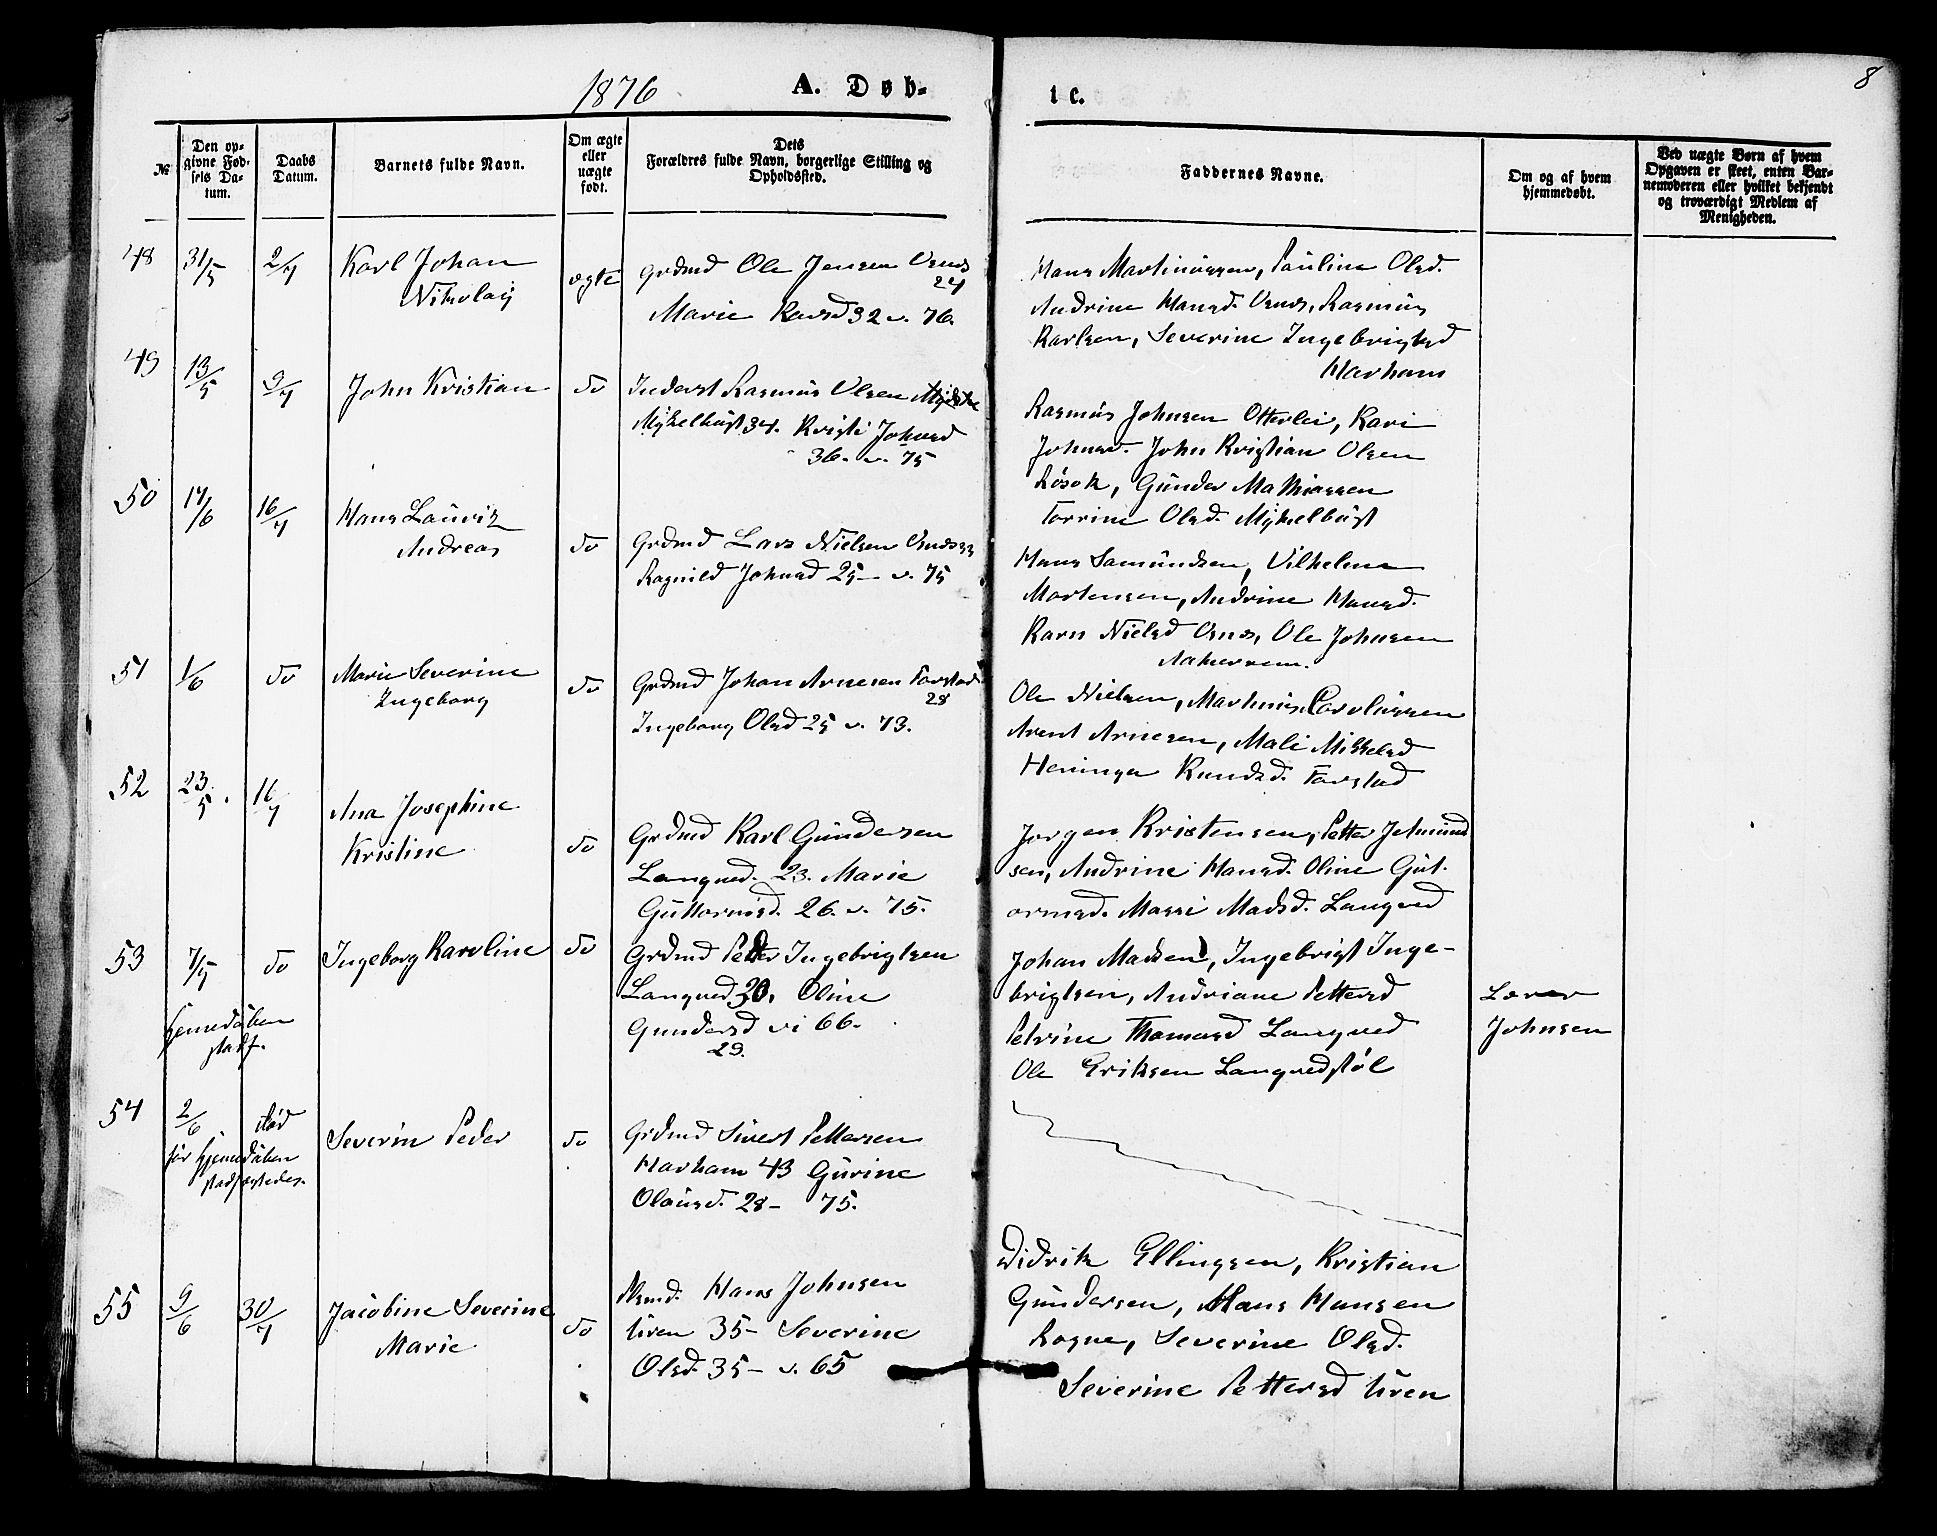 1876
A. Døb-
te.
8
№
Den op-
givne Fød-
sels Da-
tum.
Daabs
Datum.
Barnets fulde Navn.
Om ægte
eller
uægte
født.
Dets
Forældres fulde Navn, borgerlige Stilling og
Opholdssted.
Faddernes Navne.
Om og af hvem
hjemmedøbt.
Ved uægte Børn af hvem
Opgaven er skeet, enten Bar-
nemoderen eller hvilket bekjendt
og troværdigt Medlem af
Menigheden.
48
31/5
2/7
Karl Johan
Nikolaij
ægte
Grdmd Ole Jensen Usnes
24
Marie Karsd 32 v. 76.
Hans Martinussen, Pauline Olsd.
Andrine Hansd. Usnes, Rasmus
Karlsen, Severine Ingebrigtsd
Havham
49
13/5
9/7
John Kristian
do
Inderst Rasmus Olsen
Myklebust 34. Kristi Johnsd
36. v. 75
Rasmus Johnsen Otterlei, Kari
Johnsd. John Kristian Olsen
Røsok, Gunder Mathiassen
Torrine Olsd. Myklebust
50
17/6
16/7
Hans Lauritz
Andreas
do
Grdmd Lars Nielsen Usnes 33
Ragnild Johnsd 25 - v. 75
Hans Samundsen, Vilhelm
Mortensen, Andrine Hansd.
Karn Nielsd Usnes, Ole Johnsen
Aakernem.
51
1/6
do
Marie Severine
Ingeborg
do
Grdmd Johan Arnesen Tarstad
28
Ingeborg Olsd 25 v. 73.
Ole Nielsen, Martinus Carolussen
Arent Arnesen, Mali Mikkelsd
Heninga Knudsd. Tarstad
52
23/5.
16/7
Ana Josephine
Kristine
do
Grdmd Karl Gundersen
Langved. 23. Marie
Guttormsd. 26. v. 75.
Jørgen Kristensen, Petter Jetmund
sen, Andrine Hansd. Oline Gut-
ormsd. Massi Madsd. Langved
53
7/5
do
Ingeborg Karoline
do
Grdmd Peder Ingebrigtsen
Langved 30. Oline
Gundersd vi 66.
29.
Johan Madsen, Ingebrigt Inge-
brigtsen, Andriane Pettersd
Petrine Thomasd Langved
Ole Eriksen Langvedstøl
Lærer
Johnsen
hjemmedåben
stadf.
54
2/6
død
før hjemmedåben
stadfæstedes.
Severin Peder
do
Grdmd Sivert Pettersen
Havham 43 Gurine
Olausd. 28 - 75.
55
9/6
30/7
Jacobine Severine
Marie
do
Hans Johnsen
Uren 35 - Severine
Olsd. 35 - v. 65
Didrik Ellingsen, Kristian
Gundersen, Hans Hansen
Rogne, Severine Olsd.
Severine Pettersd Uren